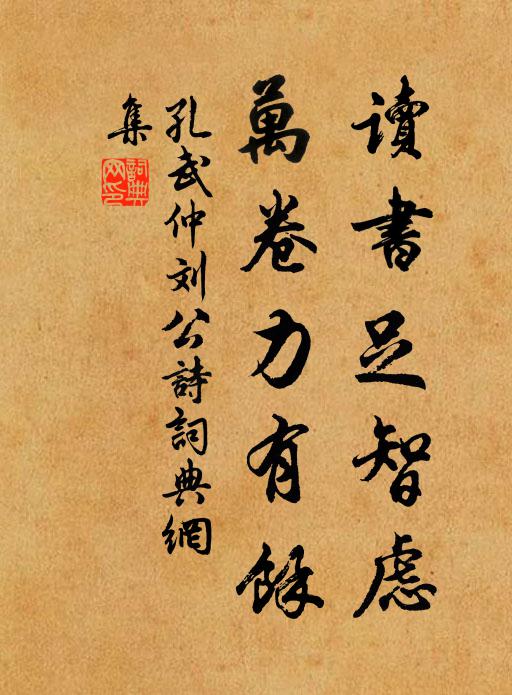 讀書足智慮
萬卷力有餘
孔武仲刘公詩詞典網
集
詞典
网印